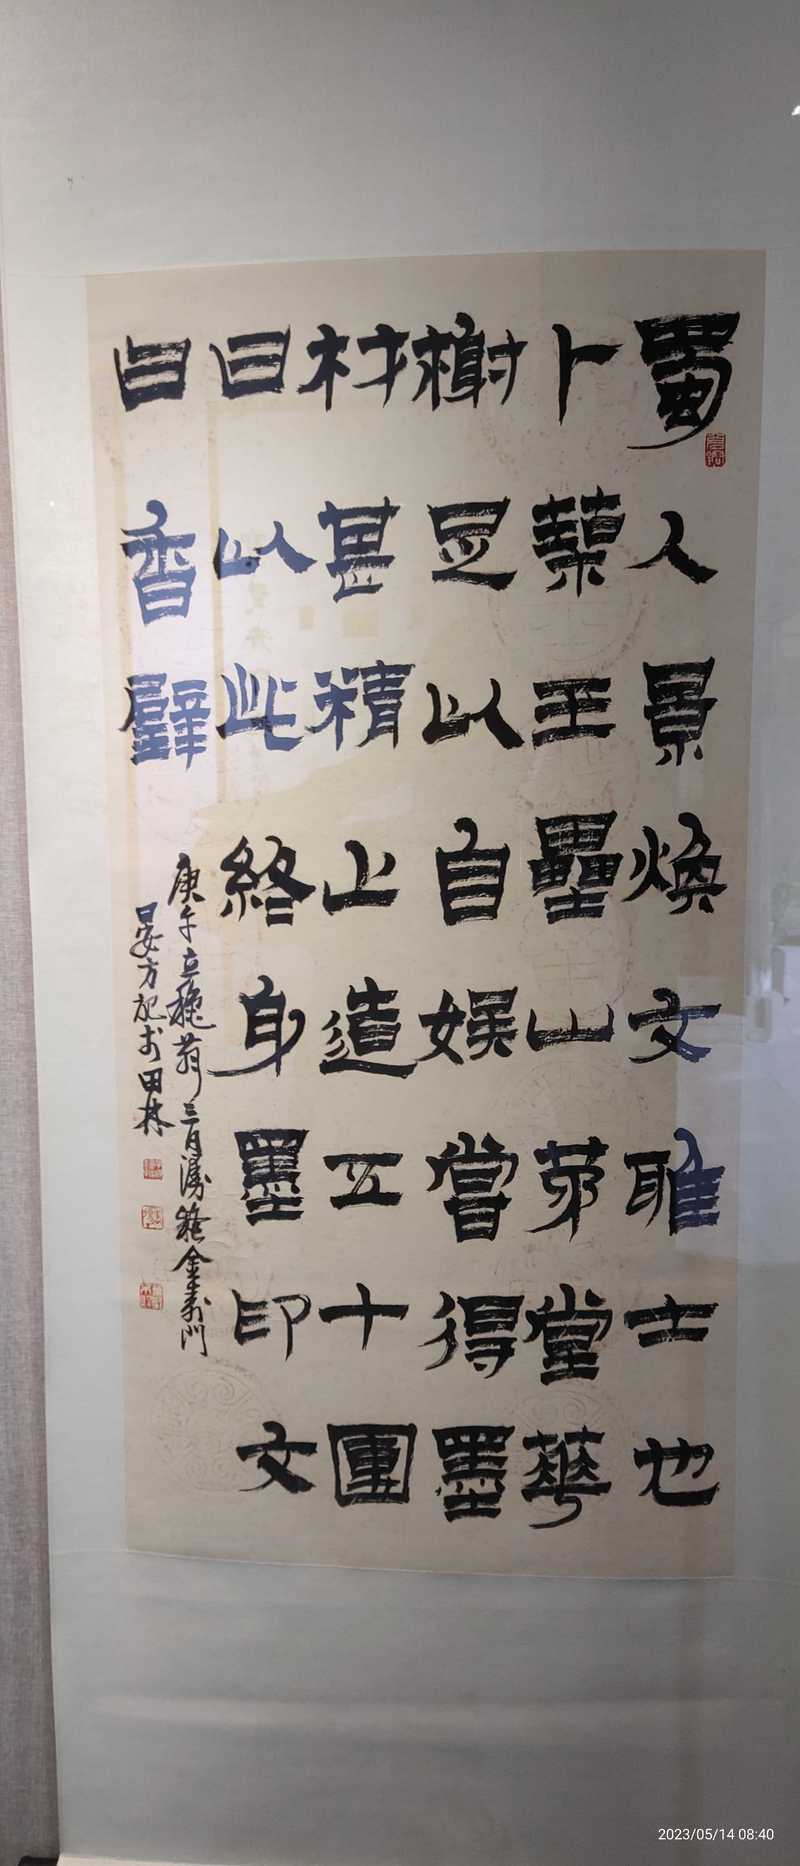 蜀人景煥文雅士也
卜築玉壘山茅堂華
榭足以自娛嘗得墨
材甚精止造五十團
曰以此終身墨印文
曰香璧
庚午立秋前三日漫
晏方記於田林
2023/05/14 08:40